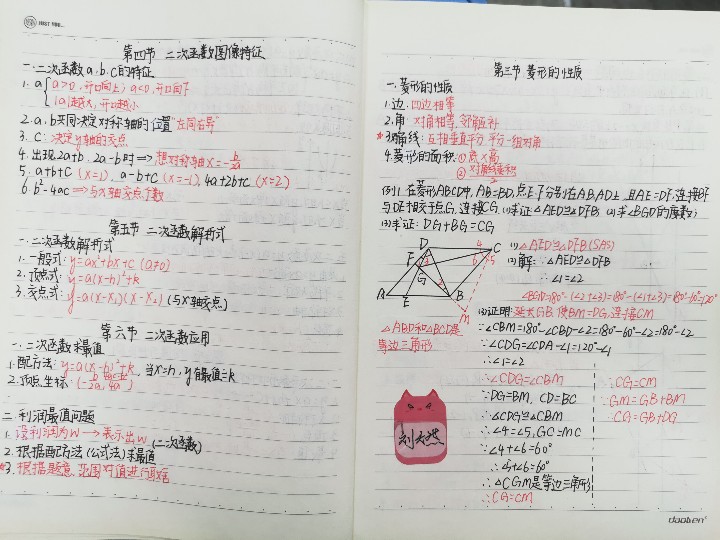 JUST FINE...
第四节 二次函数图像特征
一.二次函数a、b、c的特征
1. a { a>0,开口向上; a<0,开口向下
|a|越大,开口越小
2. a、b共同决定对称轴的位置"左同右异"
3. C: 决定y轴的交点
4. 出现2a+b、2a-b时⇒想对称轴x=-b/2a
5. a+b+c (x=1)、a-b+c (x=-1)、4a+2b+c (x=2)
6. b²-4ac⇒与x轴交点个数
第五节 二次函数解析式
一.二次函数解析式
1. 一般式: y=ax²+bx+c (a≠0)
2. 顶点式: y=a(x-h)²+k
3. 交点式: y=a(x-x₁)(x-x₂) (与x轴交点)
第六节 二次函数应用
一.二次函数求最值
1.配方法: y=a(x-h)²+k, 当x=h, y有最值=k
2.顶点坐标:
二.利润最值问题
1. 设利润为W→表示出W (二次函数)
2. 根据配方法(公式法)求最值
*3. 根据题意、范围对值进行取舍
第三节 菱形的性质
一.菱形的性质
1.边: 四边相等
2.角: 对角相等,邻角互补
*3.对角线: 互相垂直平分,平分一组对角
4.菱形的面积: ①底×高
②对角线乘积/2
例1. 在菱形ABCD中,AB=BD,点E、F分别在AB、AD上,且AE=DF,连接BF
与DE相交于点G,连接CG (1)求证△AED≌△DFB (2)求∠BGD的度数;
(3)求证: DG+BG=CG
D 4 C
F 3 6 5
G
1 2
A E B
M
△ABD和△BCD是
等边三角形
(1) △AED≌△DFB (SAS)
(2) 解: ∵△AED≌△DFB
∴∠1=∠2
∠BGD=180°-(∠2+∠3)=180°-(∠1+∠3)=180°-60°=120°
(3)证明: 延长GB,使BM=DG,连接CM
∵∠CBM=180°-∠CBD-∠2=180°-60°-∠2=180°-∠2
∵∠CDG=∠CDA-∠1=120°-∠1
∴∠1=∠2
∴∠CDG=∠CBM
∵DG=BM, CD=BC
∴△CDG≌△CBM
∴∠4=∠5, GC=MC
∵∠4+∠6=60°
∴∠5+∠6=60°
∴△CGM是等边三角形
∴CG=CM
∴CG=CM
∵GM=GB+BM
∴CG=GB+DG
daolien